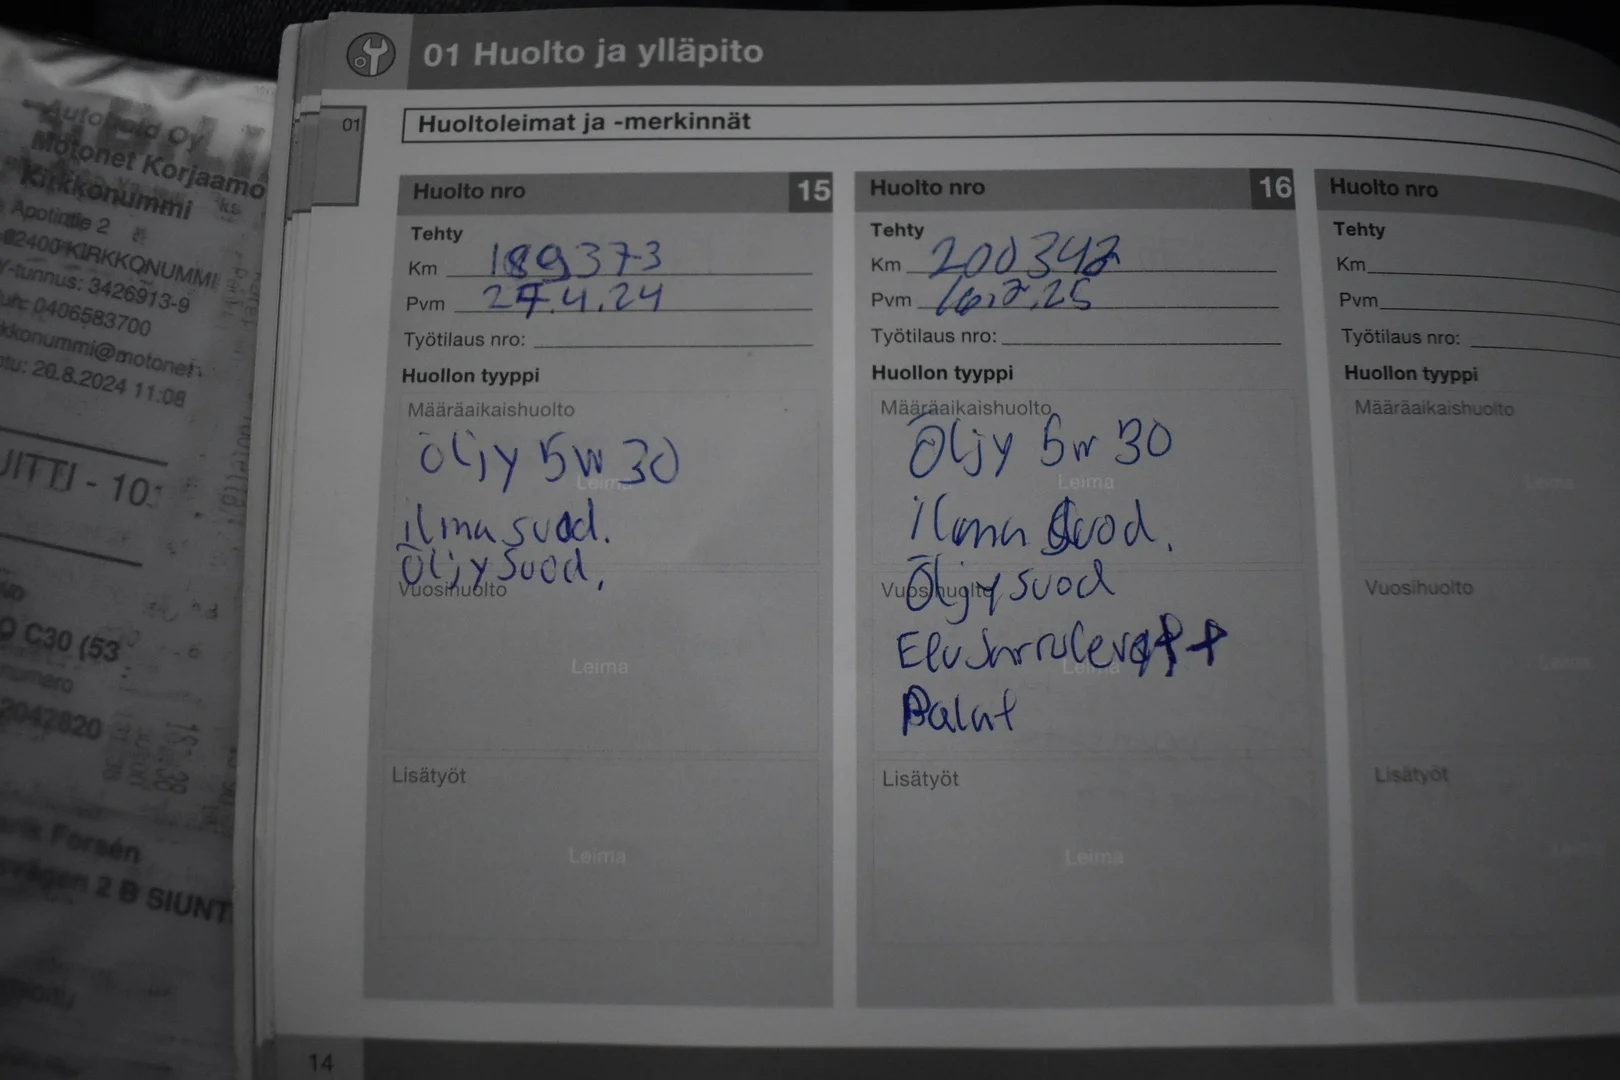 Motonet Korjaamo
Kirkkonummi
Apotintie 2
02400 KIRKKONUMMI
Y-tunnus: 3426913-9
0406583700
20.8.2024 11:08
C30 (53
2042820
Forsén
2 B SIUNT
01 Huolto ja ylläpito
01
Huoltoleimat ja -merkinnät
Huolto nro 15
Tehty
Km 189373
Pvm 27.4.24
Työtilaus nro:
Huollon tyyppi
Määräaikaishuolto
Öljy 5w 30
Leima
ilmasuod.
Öljysuod.
Vuosihuolto
Leima
Lisätyöt
Leima
Huolto nro 16
Tehty
Km 200342
Pvm 16.2.25
Työtilaus nro:
Huollon tyyppi
Määräaikaishuolto
Öljy 5w 30
Leima
ilmasuod.
Öljysuod
Vuosihuolto
EtuJarrulevyt +
Leima
Palat
Lisätyöt
Leima
Huolto nro
Tehty
Km
Pvm
Työtilaus nro:
Huollon tyyppi
Määräaikaishuolto
Leima
Vuosihuolto
Leima
Lisätyöt
Leima
14